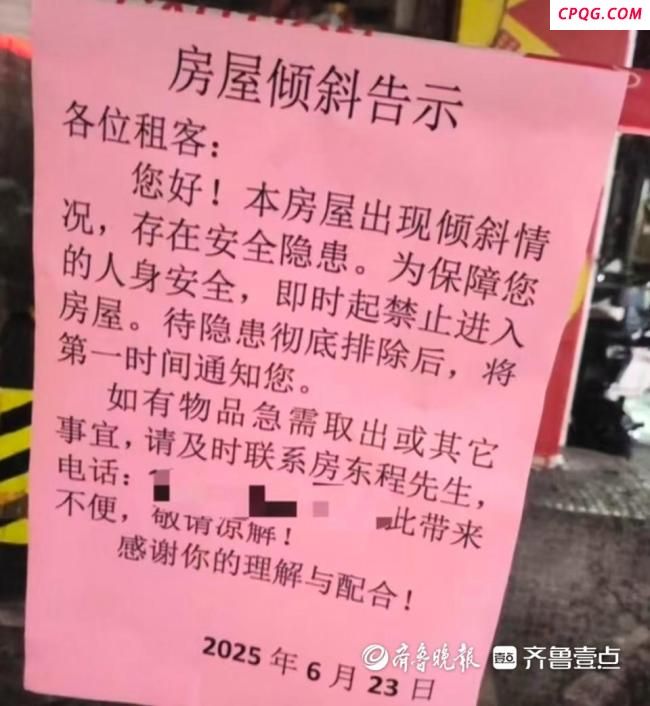 CPQG.COM
房屋倾斜告示
各位租客：
您好！本房屋出现倾斜情
况，存在安全隐患。为保障您
的人身安全，即时起禁止进入
房屋。待隐患彻底排除后，将
第一时间通知您。
如有物品急需取出或其它
事宜，请及时联系房东程先生，
电话：
此带来
不便，敬请凉解！
感谢你的理解与配合！
2025 年 6 月 23 日
齐鲁晚报 壹点 齐鲁壹点